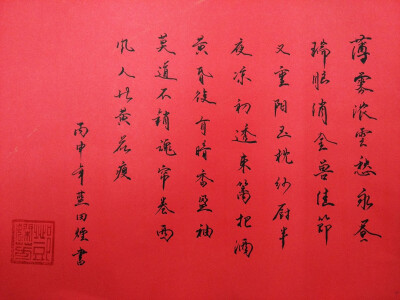 薄雾浓云愁永昼
瑞脑消金兽佳节
又重阳玉枕纱厨半
夜凉初透东篱把酒
黄昏后有暗香盈袖
莫道不销魂帘卷西
风人比黄花瘦
丙申年蓝田烟书